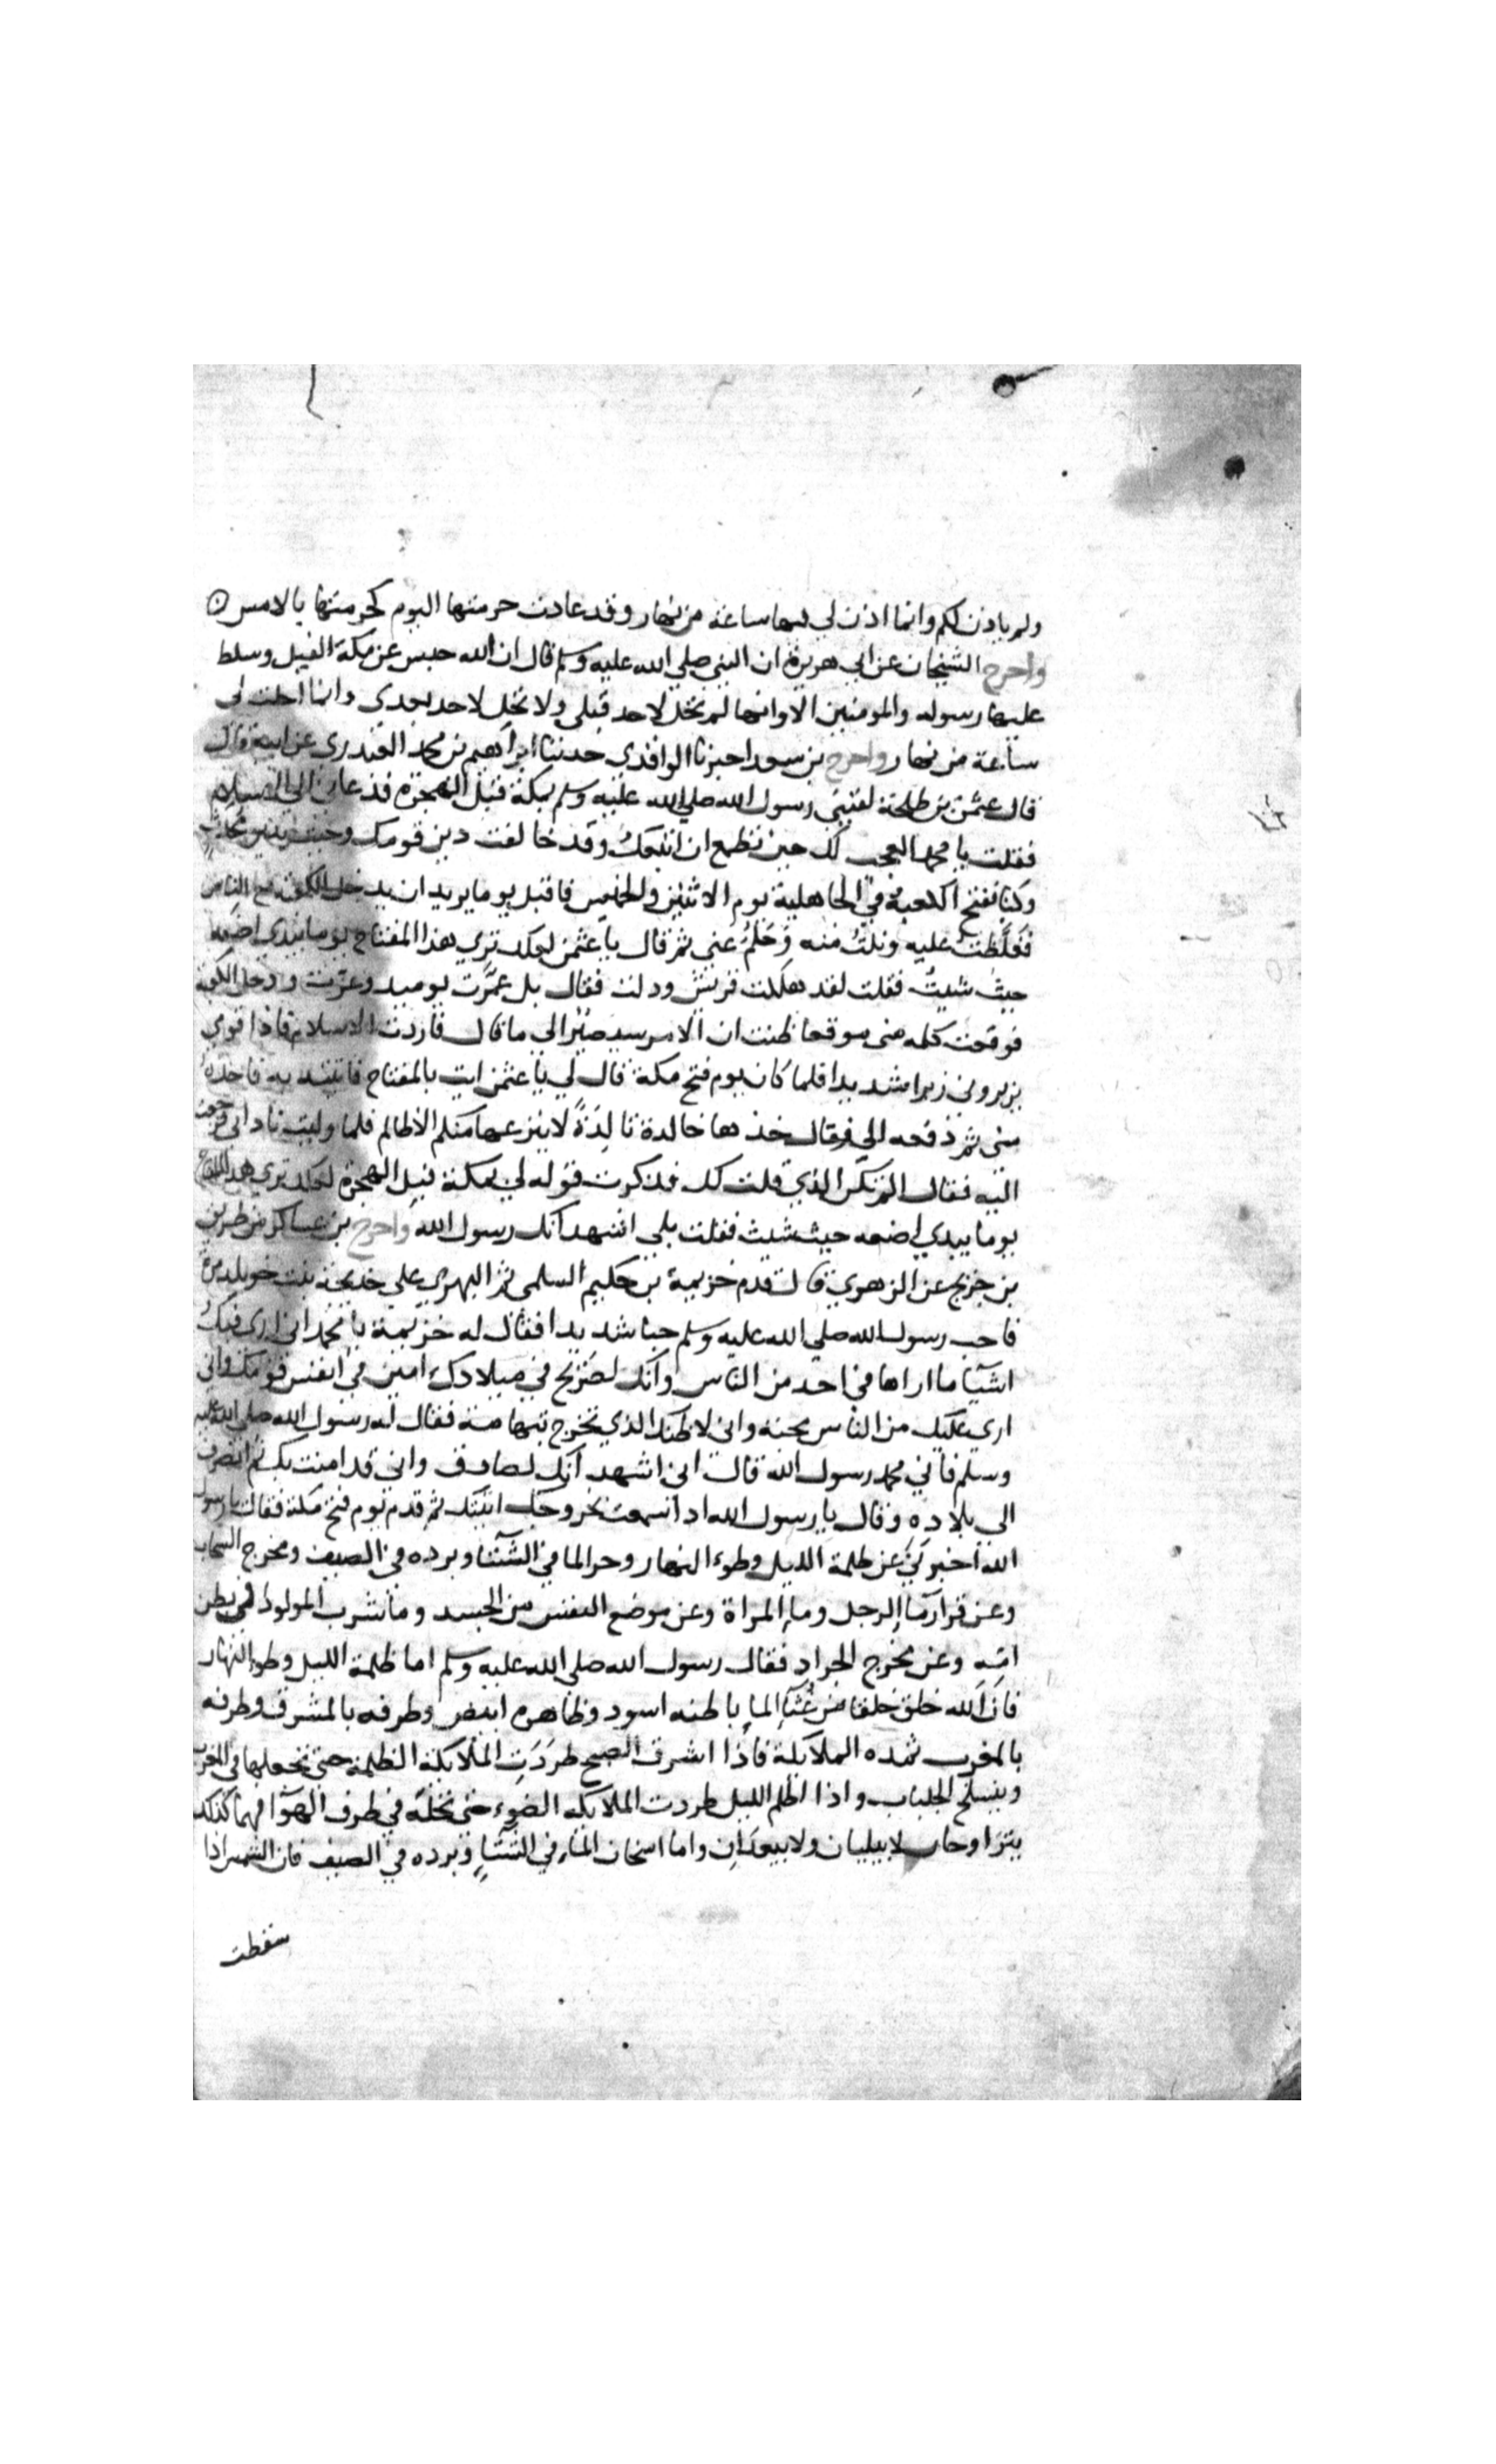 ولم ياذن لكم وانما اذن لي فيها ساعة من نهار وقد عادت حرمتها اليوم كحرمتها بالامس
واخرج الشيخان عن ابي هريرة ان النبي صلي الله عليه وسلم قال ان الله حبس عن مكة الفيل وسلط
عليها رسوله والمومنين الا وانها لم تحل لاحد قبلي ولا تحل لاحد بعدي وانما احلت لي
ساعة من نهار واخرج بن سعد اخبرنا الواقدي حدثنا ابراهيم بن محمد العبدري عن ابيه قال
قال عثمن بن طلحة لقيني رسول الله صلي الله عليه وسلم بمكة قبل الهجرة فدعاني الي الاسلام
فقلت يا محمد العجب لك حين تطمع ان اتبعك وقد خالفت دين قومك وجيت بدين محدث
وكنا نفتح الكعبة في الجاهلية يوم الاثنين والخميس فاقبل يوما يريد ان يدخل الكعبة مع الناس
فغلظت عليه ونلت منه وحلم عني ثم قال يا عثمن لعلك تري هذا المفتاح يوما بيدي اضعه
حيث شيت فقلت لقد هلكت قريش وذلت فقال بل عمرت يوميد وعزت ودخل الكعبة
فوقعت كلمه مني موقعا ظننت ان الامر سيصير الي ما قال فاردت الاسلام فاذا قومي
يزبروني زبرا شديدا فلما كان يوم فتح مكة قال لي يا عثمن ايت بالمفتاح فاتيته به فاخذه
مني ثم دفعه الي فقال خذها خالدة تالدة لا ينزعها منكم الا ظالم فلما وليت ناداني فرجعت
اليه فقال الم يكن الذي قلت لك فذكرت قوله لي بمكة قبل الهجرة لعلك تري هذا المفتاح
يوما بيدي اضعه حيث شيت فقلت بلي اشهد انك رسول الله واخرج بن عساكر من طريق
بن جريج عن الزهري قال قدم خزيمة بن حكيم السلمي ثم البهزي علي خديجة بنت خويلد مرة
فاحب رسول الله صلي الله عليه وسلم حبا شديدا فقال له خزيمة يا محمد اني اري فيك
اشيآ ما اراها في احد من الناس وانك لصريح في ميلادك امين في انفس قومك واني
اري عليك من الناس محبة واني لاظنك الذي تخرج بتهامة فقال له رسول الله صلي الله عليه
وسلم فاني محمد رسول الله قال اني اشهد انك لصادق واني قد امنت بك ثم انصرف
الي بلاده وقال يا رسول الله اذا سمعت بخروجك اتيتك ثم قدم يوم فتح مكة فقال يا رسول
الله اخبرني عن ظلمة الليل وضوء النهار وحر الما في الشتا وبرده في الصيف ومخرج السحاب
وعن قرار مآ الرجل وماء المراة وعن موضع النفس من الجسد وما شرب المولود في بطن
امه وعن مخرج الجراد فقال رسول الله صلي الله عليه وسلم اما ظلمة الليل وضوء النهار
فان الله خلق خلقا من غثآء الماء باطنه اسود وظاهره ابيض وطرفه بالمشرق وطرفه
بالمغرب تمده الملايكة فاذا اشرق الصبح طردت الملايكة الظلمة حتي تجعلها في المغرب
وينسلخ الجلباب واذا اظلم الليل طردت الملايكه الضوء حتي تحله في طرف الهوآ فهما كذلك
يتراوحان لا يبليان ولا يبعدان واما اسخان الماء في الشتاء وبرده في الصيف فان الشمس اذا
سقطت